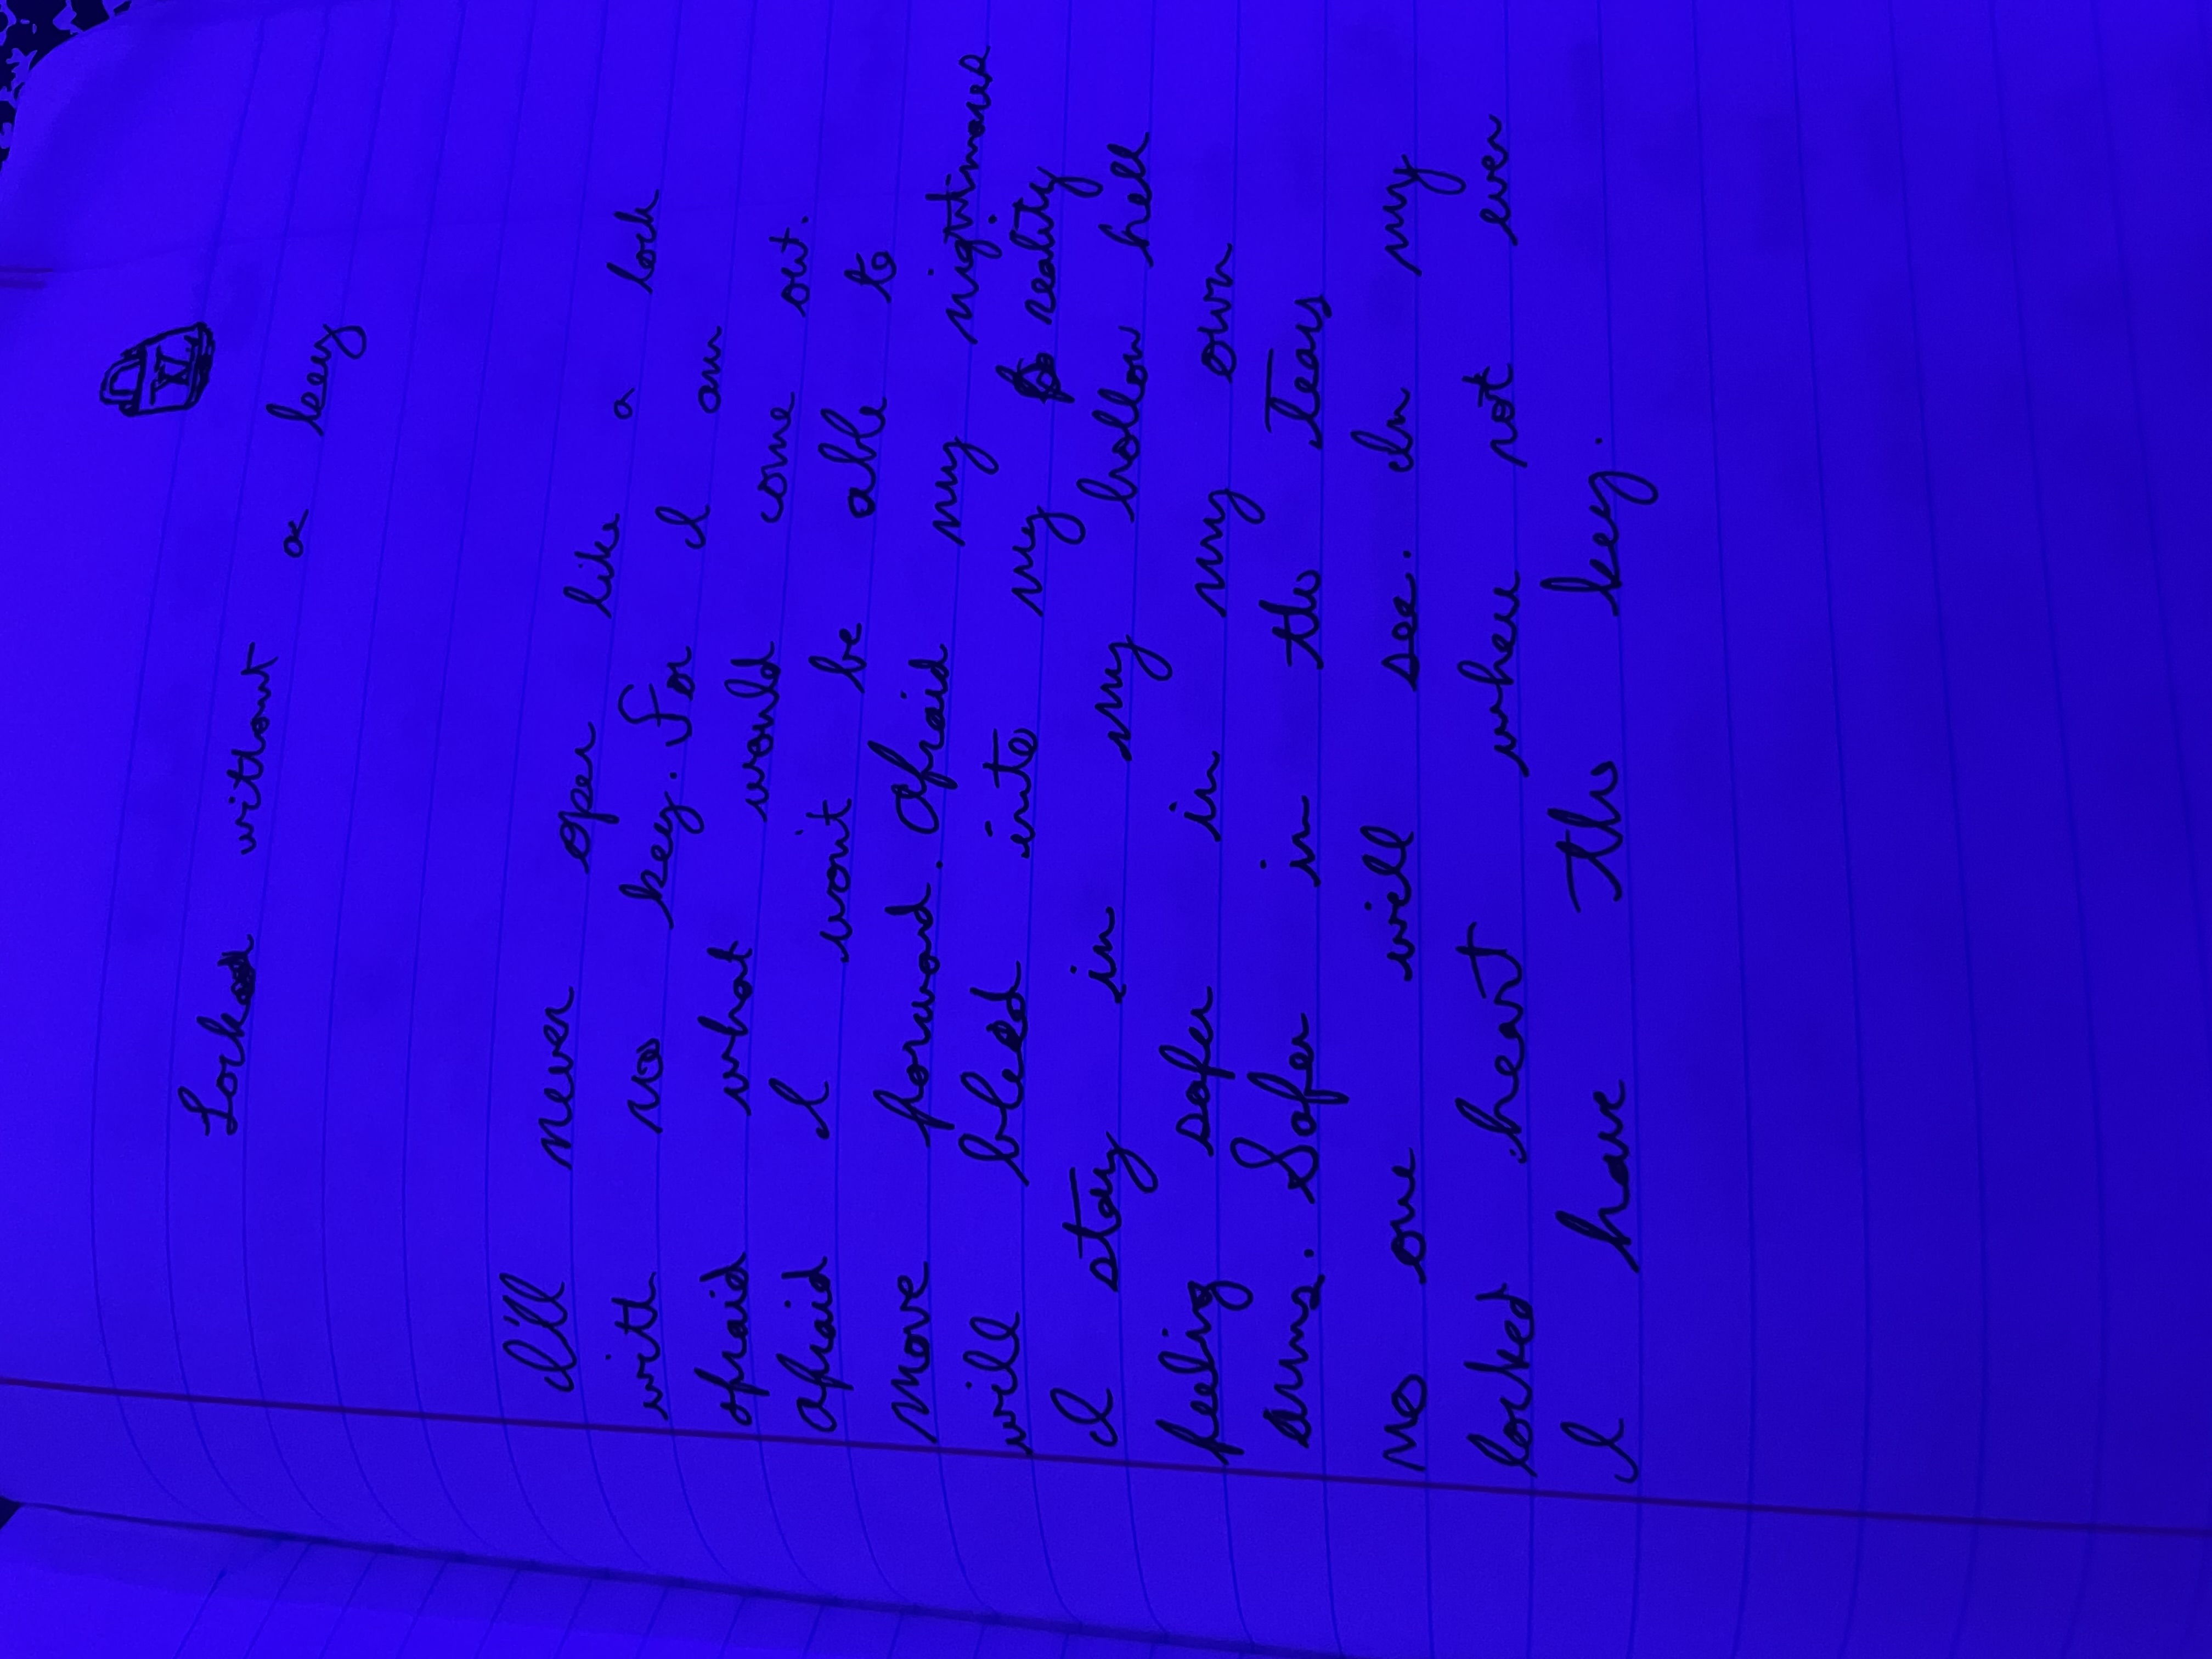 Lock without a key
XL
I'll never open like a lock
with no key. For I am
afraid what would come out.
afraid I wont be able to
move forward. Afraid my nightmares
will bleed into my reality.
I stay in my hollow hell
feeling safer in my own
arms. Safer in the tears
no one will see. In my
locked heart where not even
I have the key.